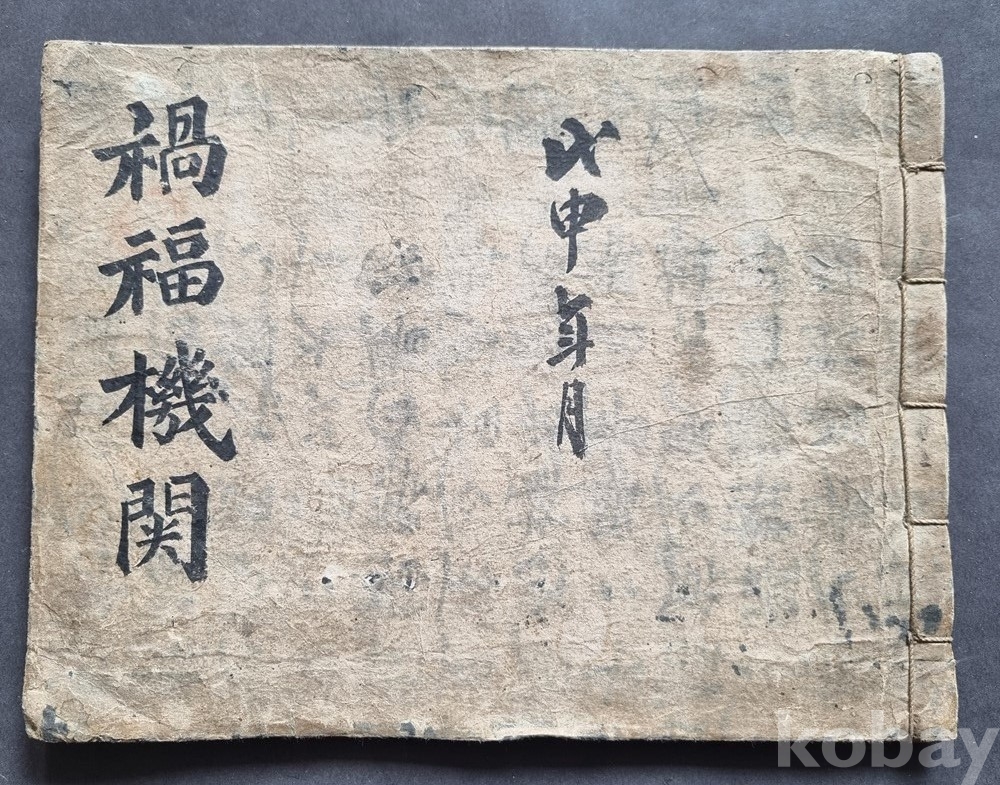 戊申年月
禍福機関
kobay